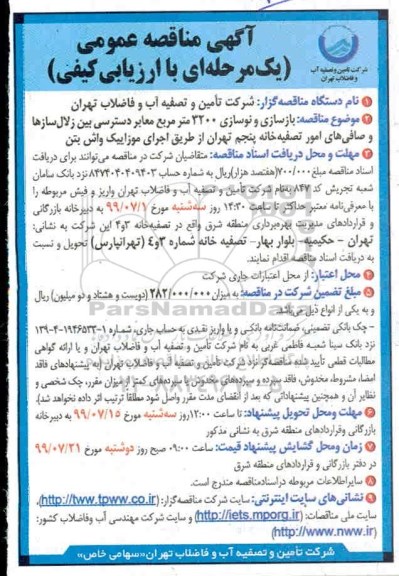 آگهی مناقصه عمومی
(یک‌مرحله‌ای با ارزیابی کیفی)
شرکت تأمین و تصفیه آب
و فاضلاب تهران
۱ نام دستگاه مناقصه‌گزار: شرکت تأمین و تصفیه آب و فاضلاب تهران
۲ موضوع مناقصه: بازسازی و نوسازی ۳۲۰۰ متر مربع معابر دسترسی بین زلال‌سازها
و صافی‌های امور تصفیه‌خانه پنجم تهران از طریق اجرای موزاییک واش بتن
۳ مهلت و محل دریافت اسناد مناقصه: متقاضیان شرکت در مناقصه می‌توانند برای دریافت
اسناد مناقصه مبلغ ۷۰۰/۰۰۰ (هفتصد هزار) ریال به شماره حساب ۸۴۷۴۰۴۰۴۰۹۴۰۳ نزد بانک سامان
شعبه تجریش کد ۸۴۷ به‌نام شرکت تأمین و تصفیه آب و فاضلاب تهران واریز و فیش مربوطه را
با معرفی‌نامه معتبر حداکثر تا ساعت ۱۴:۳۰ روز سه‌شنبه مورخ ۹۹/۰۷/۱ به دبیرخانه بازرگانی
و قراردادهای مدیریت بهره‌برداری منطقه شرق واقع در تصفیه‌خانه ۳و۴ این شرکت به نشانی:
تهران - حکیمیه- بلوار بهار- تصفیه خانه شماره ۳و۴ (تهرانپارس) تحویل و نسبت
به دریافت اسناد مناقصه اقدام نمایند.
۴ محل اعتبار: از محل اعتبارات جاری شرکت
۵ مبلغ تضمین شرکت در مناقصه: به میزان ۲۸۲/۰۰۰/۰۰۰ (دویست و هشتاد و دو میلیون) ریال
و به یکی از انواع ذیل می‌باشد.
- چک بانکی تضمینی، ضمانتنامه بانکی و یا واریز نقدی به حساب جاری، شماره ۱-۱۹۴۶۵۳۳-۴-۱۳۹
نزد بانک سینا شعبه فاطمی غربی به نام شرکت تأمین و تصفیه آب و فاضلاب تهران و یا ارائه گواهی
مطالبات قطعی تأیید شده مناقصه‌گر نزد شرکت تأمین و تصفیه آب و فاضلاب تهران (به پیشنهادهای فاقد
امضاء، مشروط، مخدوش، فاقد سپرده و سپرده‌های مخدوش یا سپرده‌های کمتر از میزان مقرر، چک شخصی و
نظایر آن و همچنین پیشنهاداتی که بعد از انقضای مدت مقرر واصل شود مطلقاً ترتیب اثر داده نخواهد شد).
۶ مهلت ومحل تحویل پیشنهاد: تا ساعت ۱۲:۰۰ روز سه‌شنبه مورخ ۹۹/۰۷/۱۵ به دبیرخانه
بازرگانی وقراردادهای منطقه شرق به نشانی مذکور
۷ زمان ومحل گشایش پیشنهاد قیمت: ساعت ۰۹:۰۰ صبح روز دوشنبه مورخ ۹۹/۰۷/۲۱
در دفتر بازرگانی و قراردادهای منطقه شرق
۸ سایراطلاعات مربوطه دراسنادمناقصه مندرج است.
۹ نشانی‌های سایت اینترنتی: سایت شرکت مناقصه‌گزار: (http://tww.tpww.co.ir)،
سایت ملی مناقصات: (http://iets.mporg.ir) و سایت شرکت مهندسی آب وفاضلاب کشور:
(http://www.nww.ir)
شرکت تأمین و تصفیه آب و فاضلاب تهران «سهامی خاص»
ParsNamadData